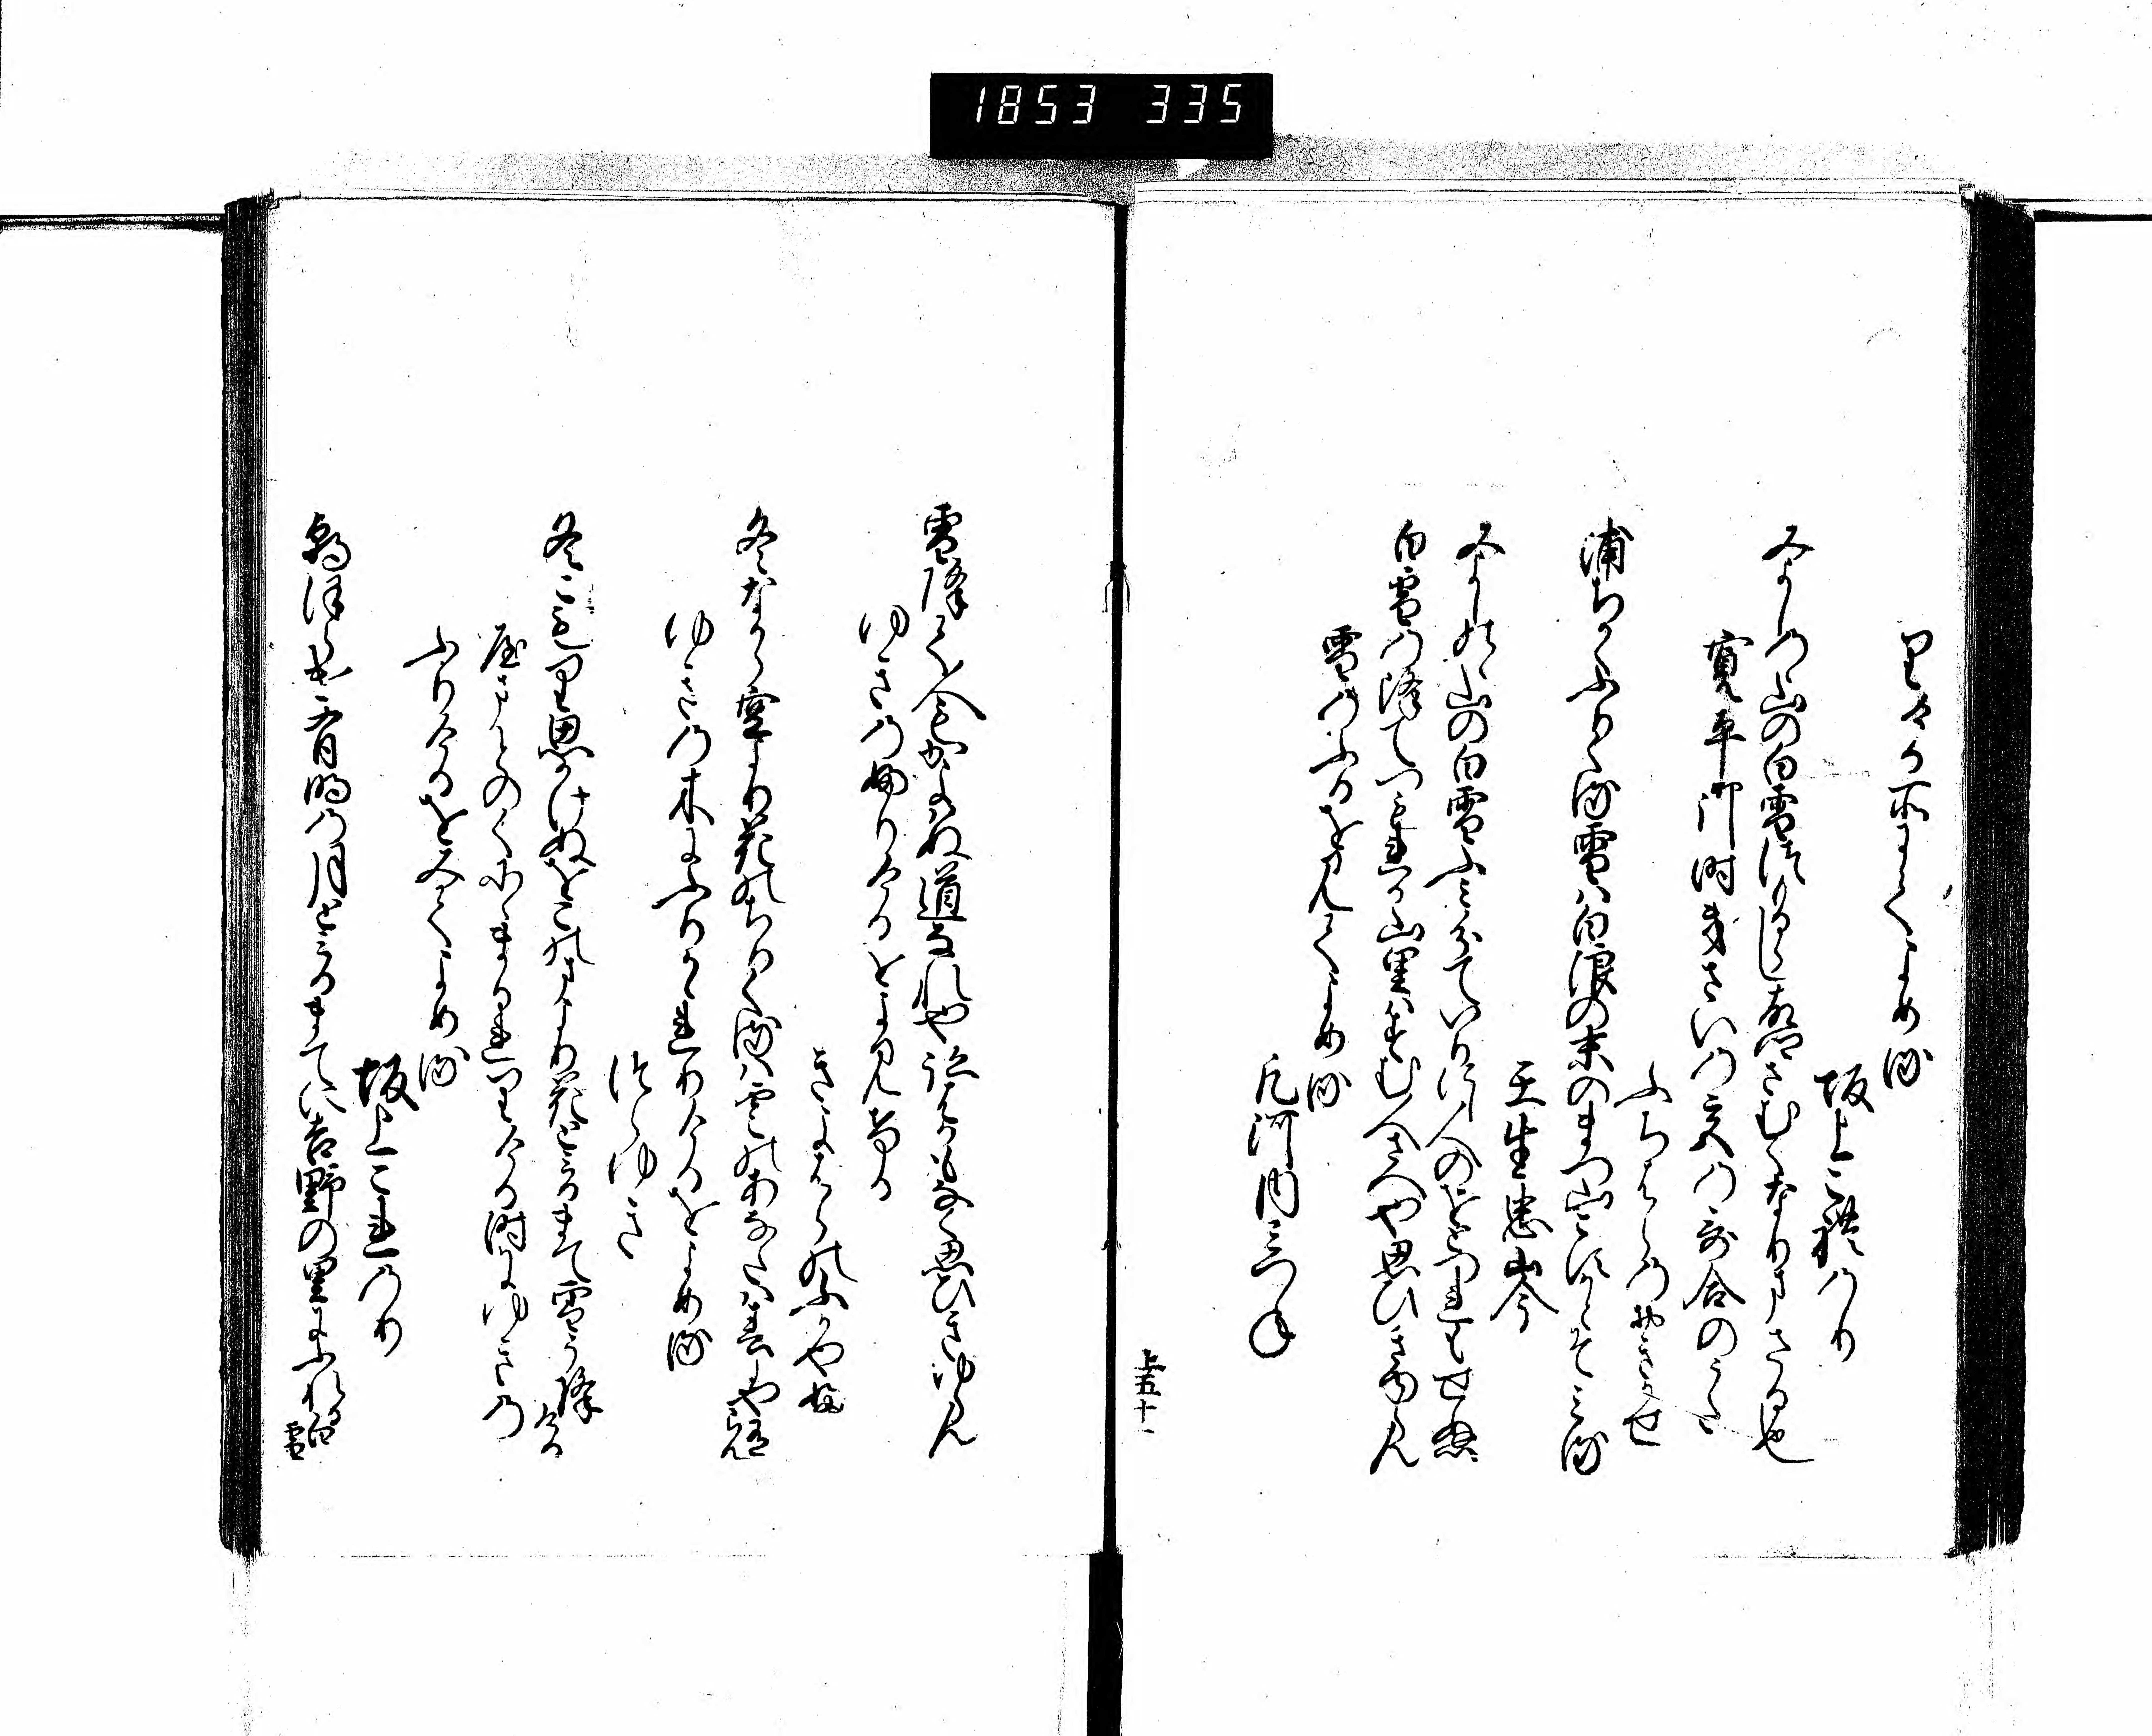 1853 335
里ける所にてよめる
坂上これのり
みよしのゝ山の白雪つもるらし故郷さむくなりまさる也
寛平御時きさいの宮の哥合のうた
ふちはらのおきかせ
浦ちかくふりくる雪は白浪の末のまつ山こすかとそみる
壬生忠岑
みよしのゝ山の白雪ふみ分ていりにし人のをとつれもせぬ
白雪の降てつもれる山里はすむ人さへや思ひきゆらん
雪のふるを見てよめる
凡河内みつね
上五十一
雪降て人もかよはぬ道なれや跡はかもなく思ひきゆらん
ゆきの降りけるをよみける
きよはらのふかやふ
冬なから空より花のちりくるは雲のあなたは春にや有らん
ゆきの木にふりかゝれりけるをよめる
つらゆき
冬こもり思ひかけぬをこのまより花とみるまて雪そ降ける
やまとのくにゝまかれりける時にゆきの
ふりけるをみてよめる
坂上これのり
朝ほらけ有明の月とみるまてに吉野の里にふれる白雪